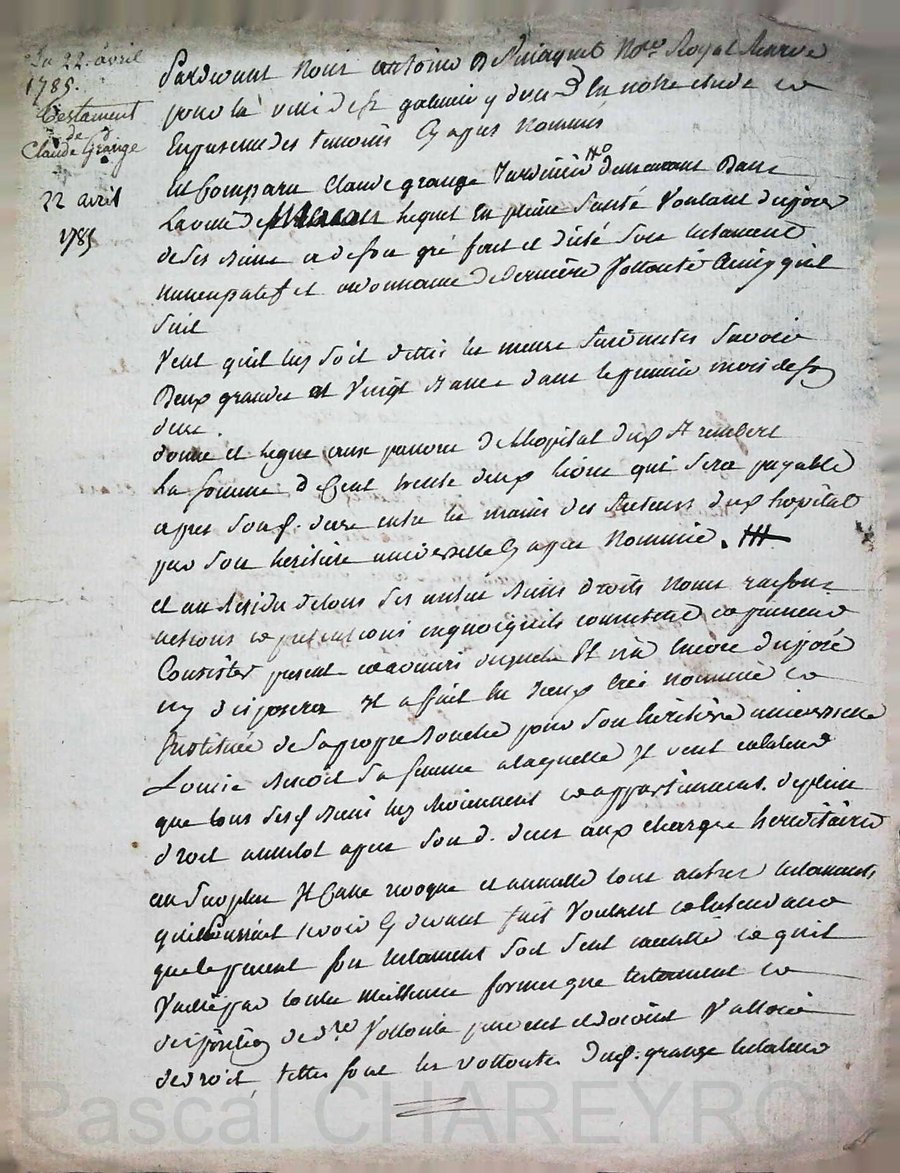 Du 22. avril
1785.
Testament
de
Claude Grange
22 avril
1785
Pardevant Nous antoine Nore Royal
pour la ville de st galmier y dem en notre étude et
En presence des temoins Cy apres Nommés
Est Comparu Claude grange demeurant Dans
La ville de lequel En pleine Santé Voulant disposer
de ses biens a de son gré fait et dicté Son testament
nuncupatif et ordonnance de Derniere Vollonté Ainsy quil
Suit
Veut quil luy soit dittes les messes Suivantes Savoir
Deux grandes et Vingt Basses dans le premier mois de son
deces
donne et legue aux pauvres de Lhopital dud St rembert
La somme de Cent trente deux livres qui Sera payable
apres Sond. deces entre les mains des Recteurs dud hopital
par Son heritiere universelle Cy apres Nommée.
et au Residu de tous Ses autres Biens droits Noms raisons
actions et pretentions en quoi quils consistent et puissent
Consister present et advenir desquels Il n'a Encore disposé
ny disposera Il a fait Créé nommée et
Instituée de sa propre Bouche pour Son heritiere universelle
Louise Benoit Sa femme a laquelle Il veut
que tous Sesd Biens luy et appartiennent de plein
Droit aussitot apres Son d. deces aux charges hereditaires
au Surplus Il Casse revoque et annulle tous autres testaments
quil Pourroit avoir Cy devant fait Voulant et Entendant
que le present son testament Soit Seul executé et quil
Vaille par toutes meilleures formes que testament et
disposition de dre Vollonté peuvent et doivent Valloir
de droit, telles sont les vollontés dud. grange testateur
Pascal CHAREYRON